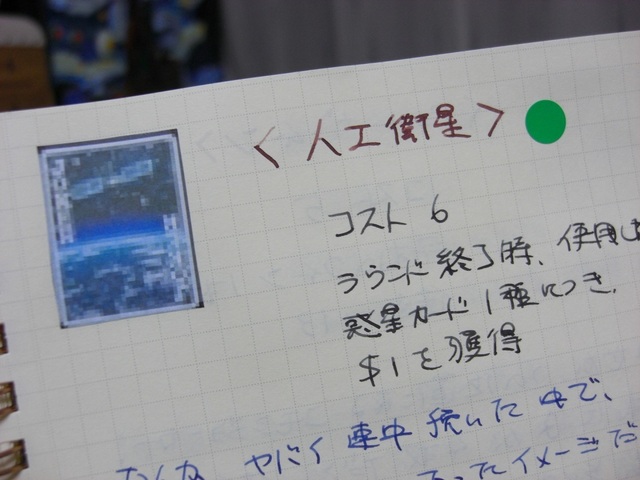 <人工衛星>
コスト 6
ラウンド終了時、使用した
惑星カード1種につき、
$1を獲得
そんな ヤバイ 連中 続いた 中で、
ったイメージだ